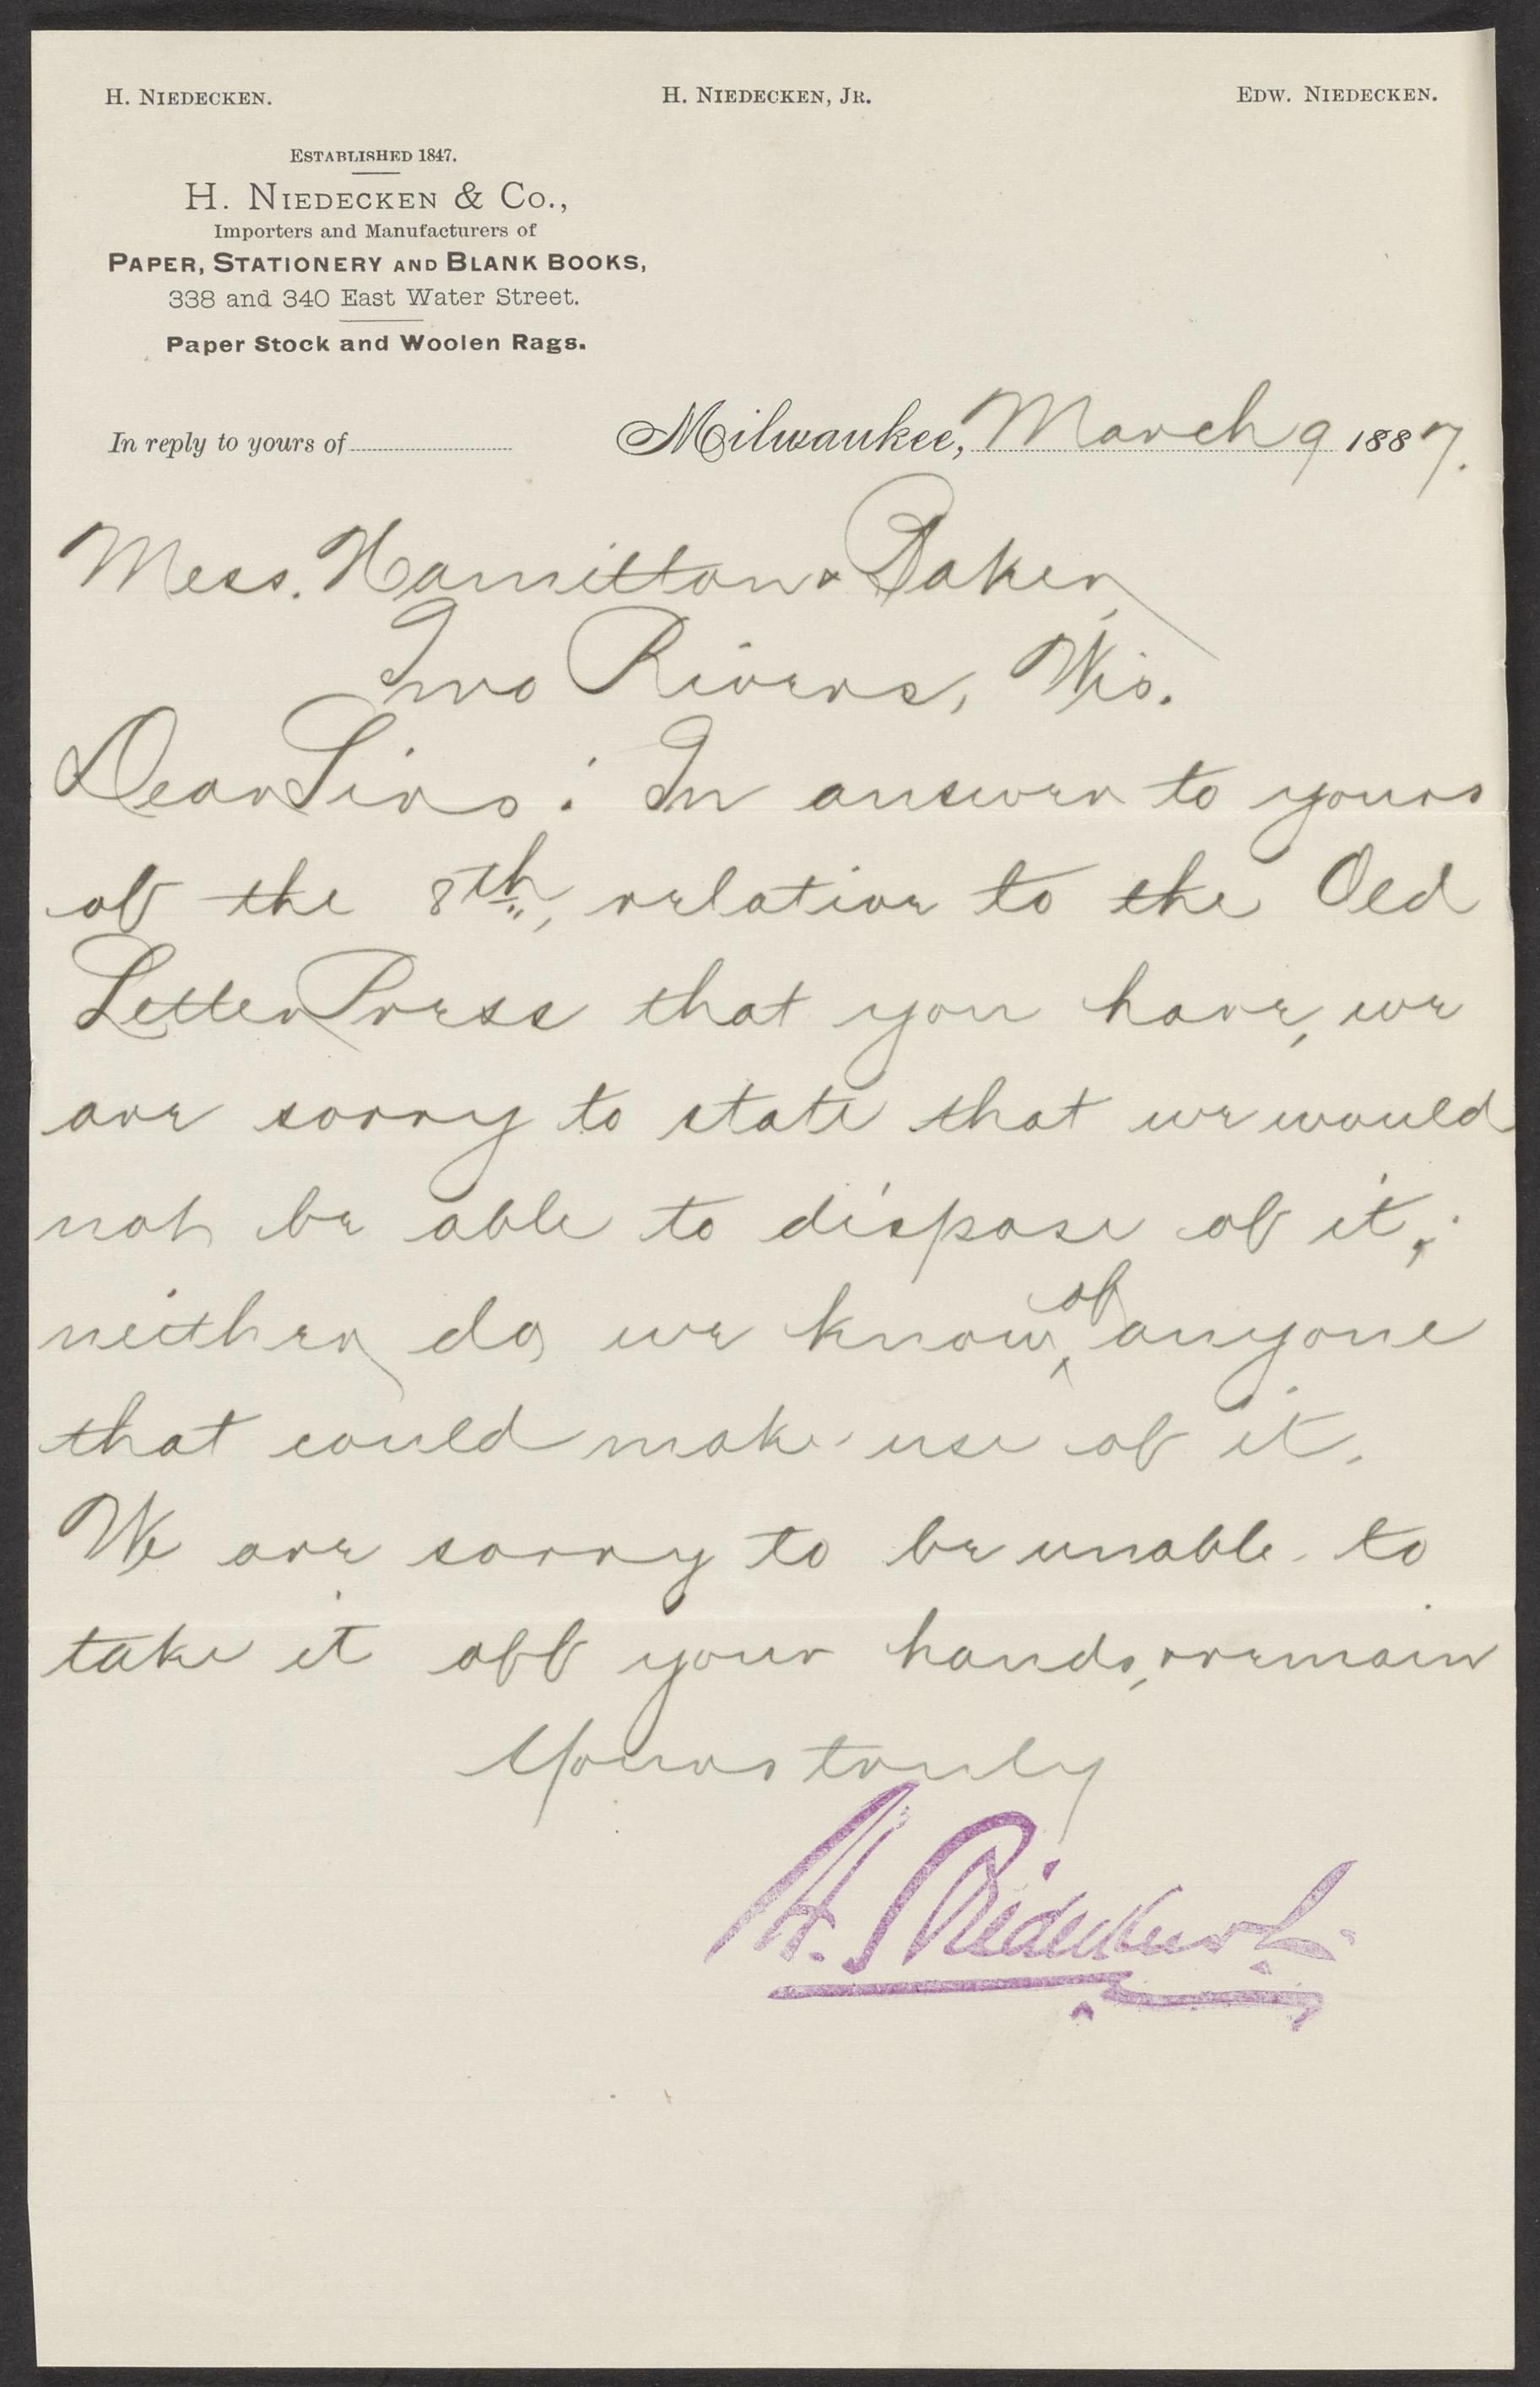 H. NIEDECKEN. H. NIEDECKEN, JR. EDW. NIEDECKEN.
ESTABLISHED 1847.
H. NIEDECKEN & Co.,
Importers and Manufacturers of
PAPER, STATIONERY AND BLANK BOOKS,
338 and 340 East Water Street.
Paper Stock and Woolen Rags.
In reply to yours of Milwaukee, March 9 1887.
Mess. Hamilton & Baker,
Two Rivers, Wis.
Dear Sirs: In answer to yours
of the 8th, relative to the Old
Letter Press that you have, we
are sorry to state that we would
not be able to dispose of it;
neither do we know of anyone
that could make use of it.
We are sorry to be unable to
take it off your hands, remain
Yours truly
H. Niedecken & Co.